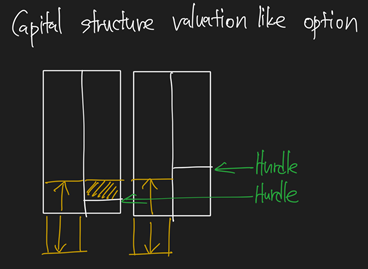 Capital structure valuation like option
Hurdle
Hurdle